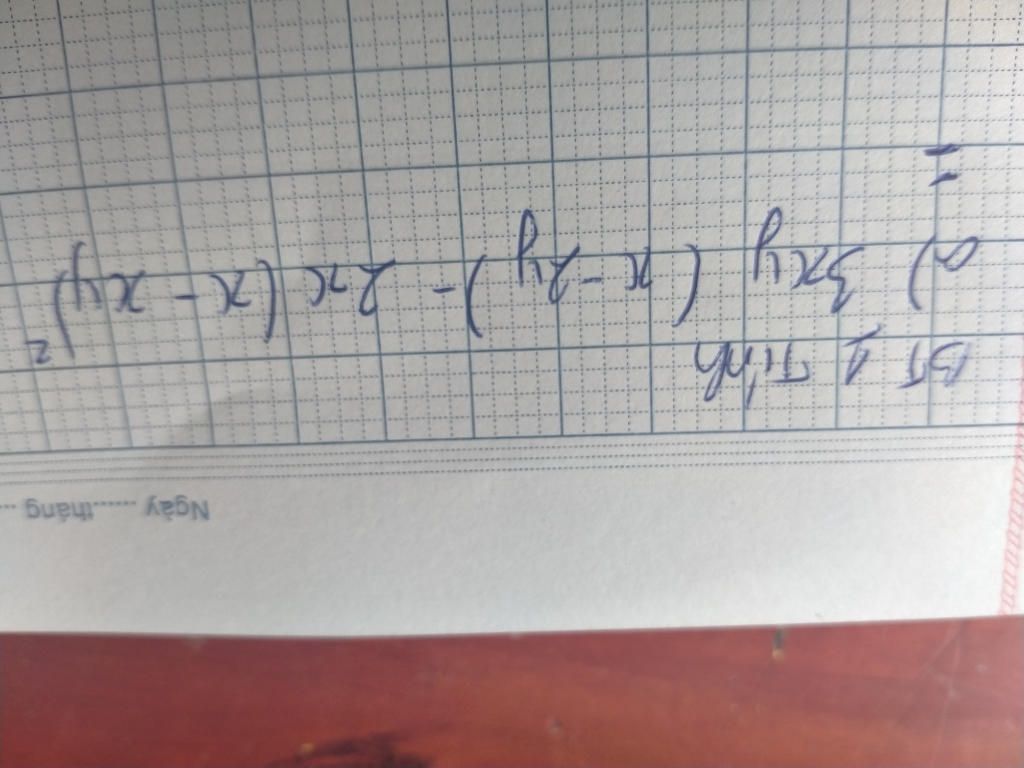 Ngày ......tháng ...
BT 1 Tính
a) 3xy (x - 2y) - 2x (x - xy)²
=